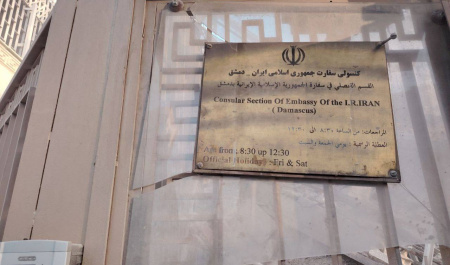 کنسولی سفارت جمهوری اسلامی ایران - دمشق
القسم القنصلي في سفارة الجمهورية الإسلامية الإيرانية بدمشق
Consular Section Of Embassy Of the I.R.IRAN
( Damascus )
المراجعات: من الساعة ٨:٣٠ الی ١٢:٣٠
العطلة الرسمية : يومي الجمعة والسبت
: 8:30 up 12:30
Official Holiday : Fri & Sat